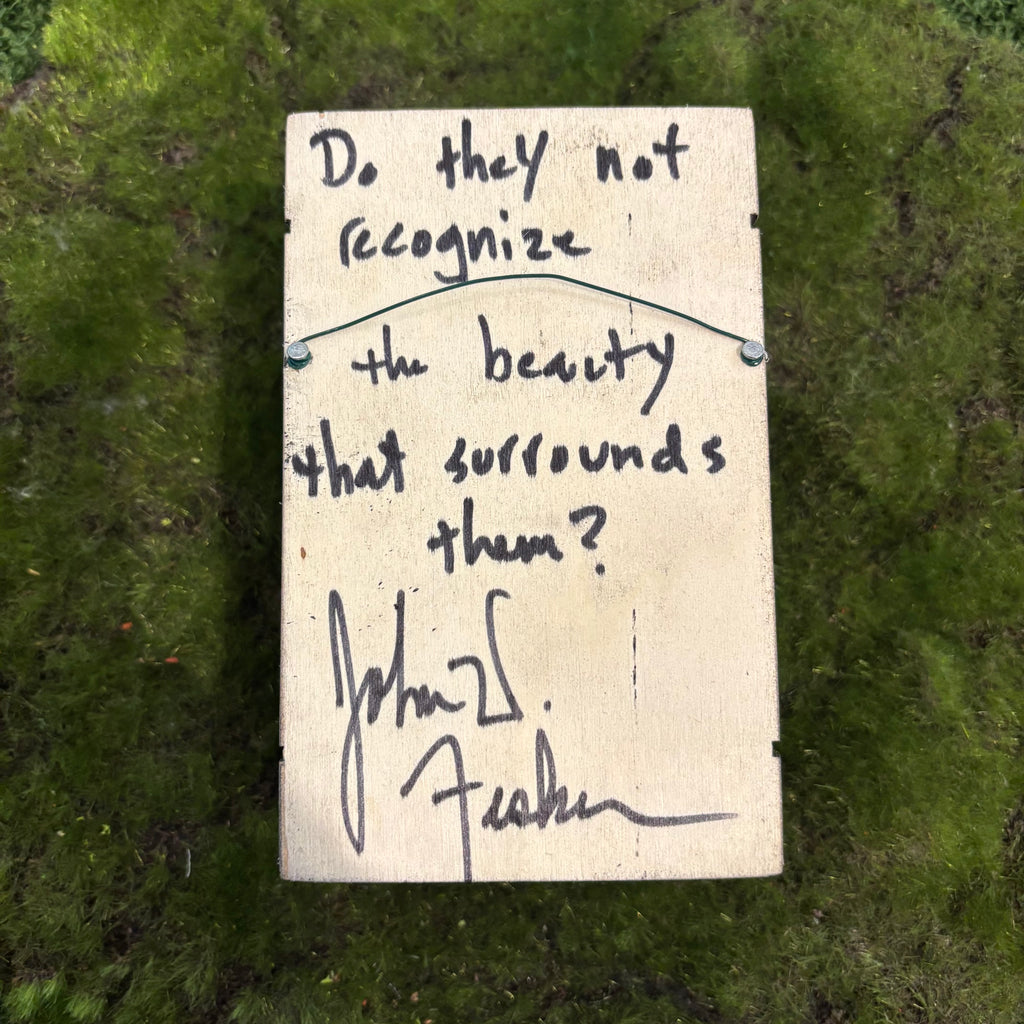 Do they not
recognize
the beauty
that surrounds
them?
John W.
Fisher